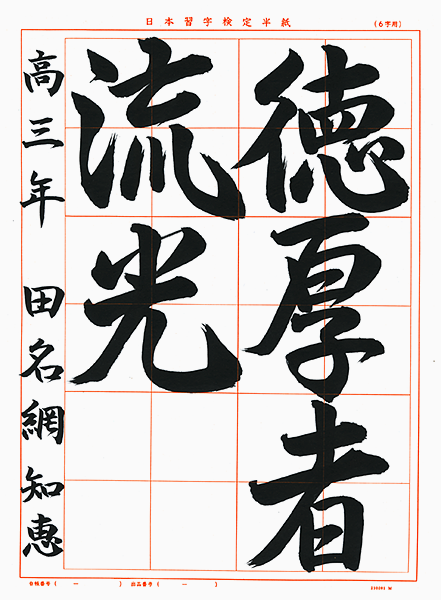 日本習字検定半紙
（6字用）
徳厚者
流光
高三年 田名網知恵
会員番号（ー ） 出品番号（ ー ）